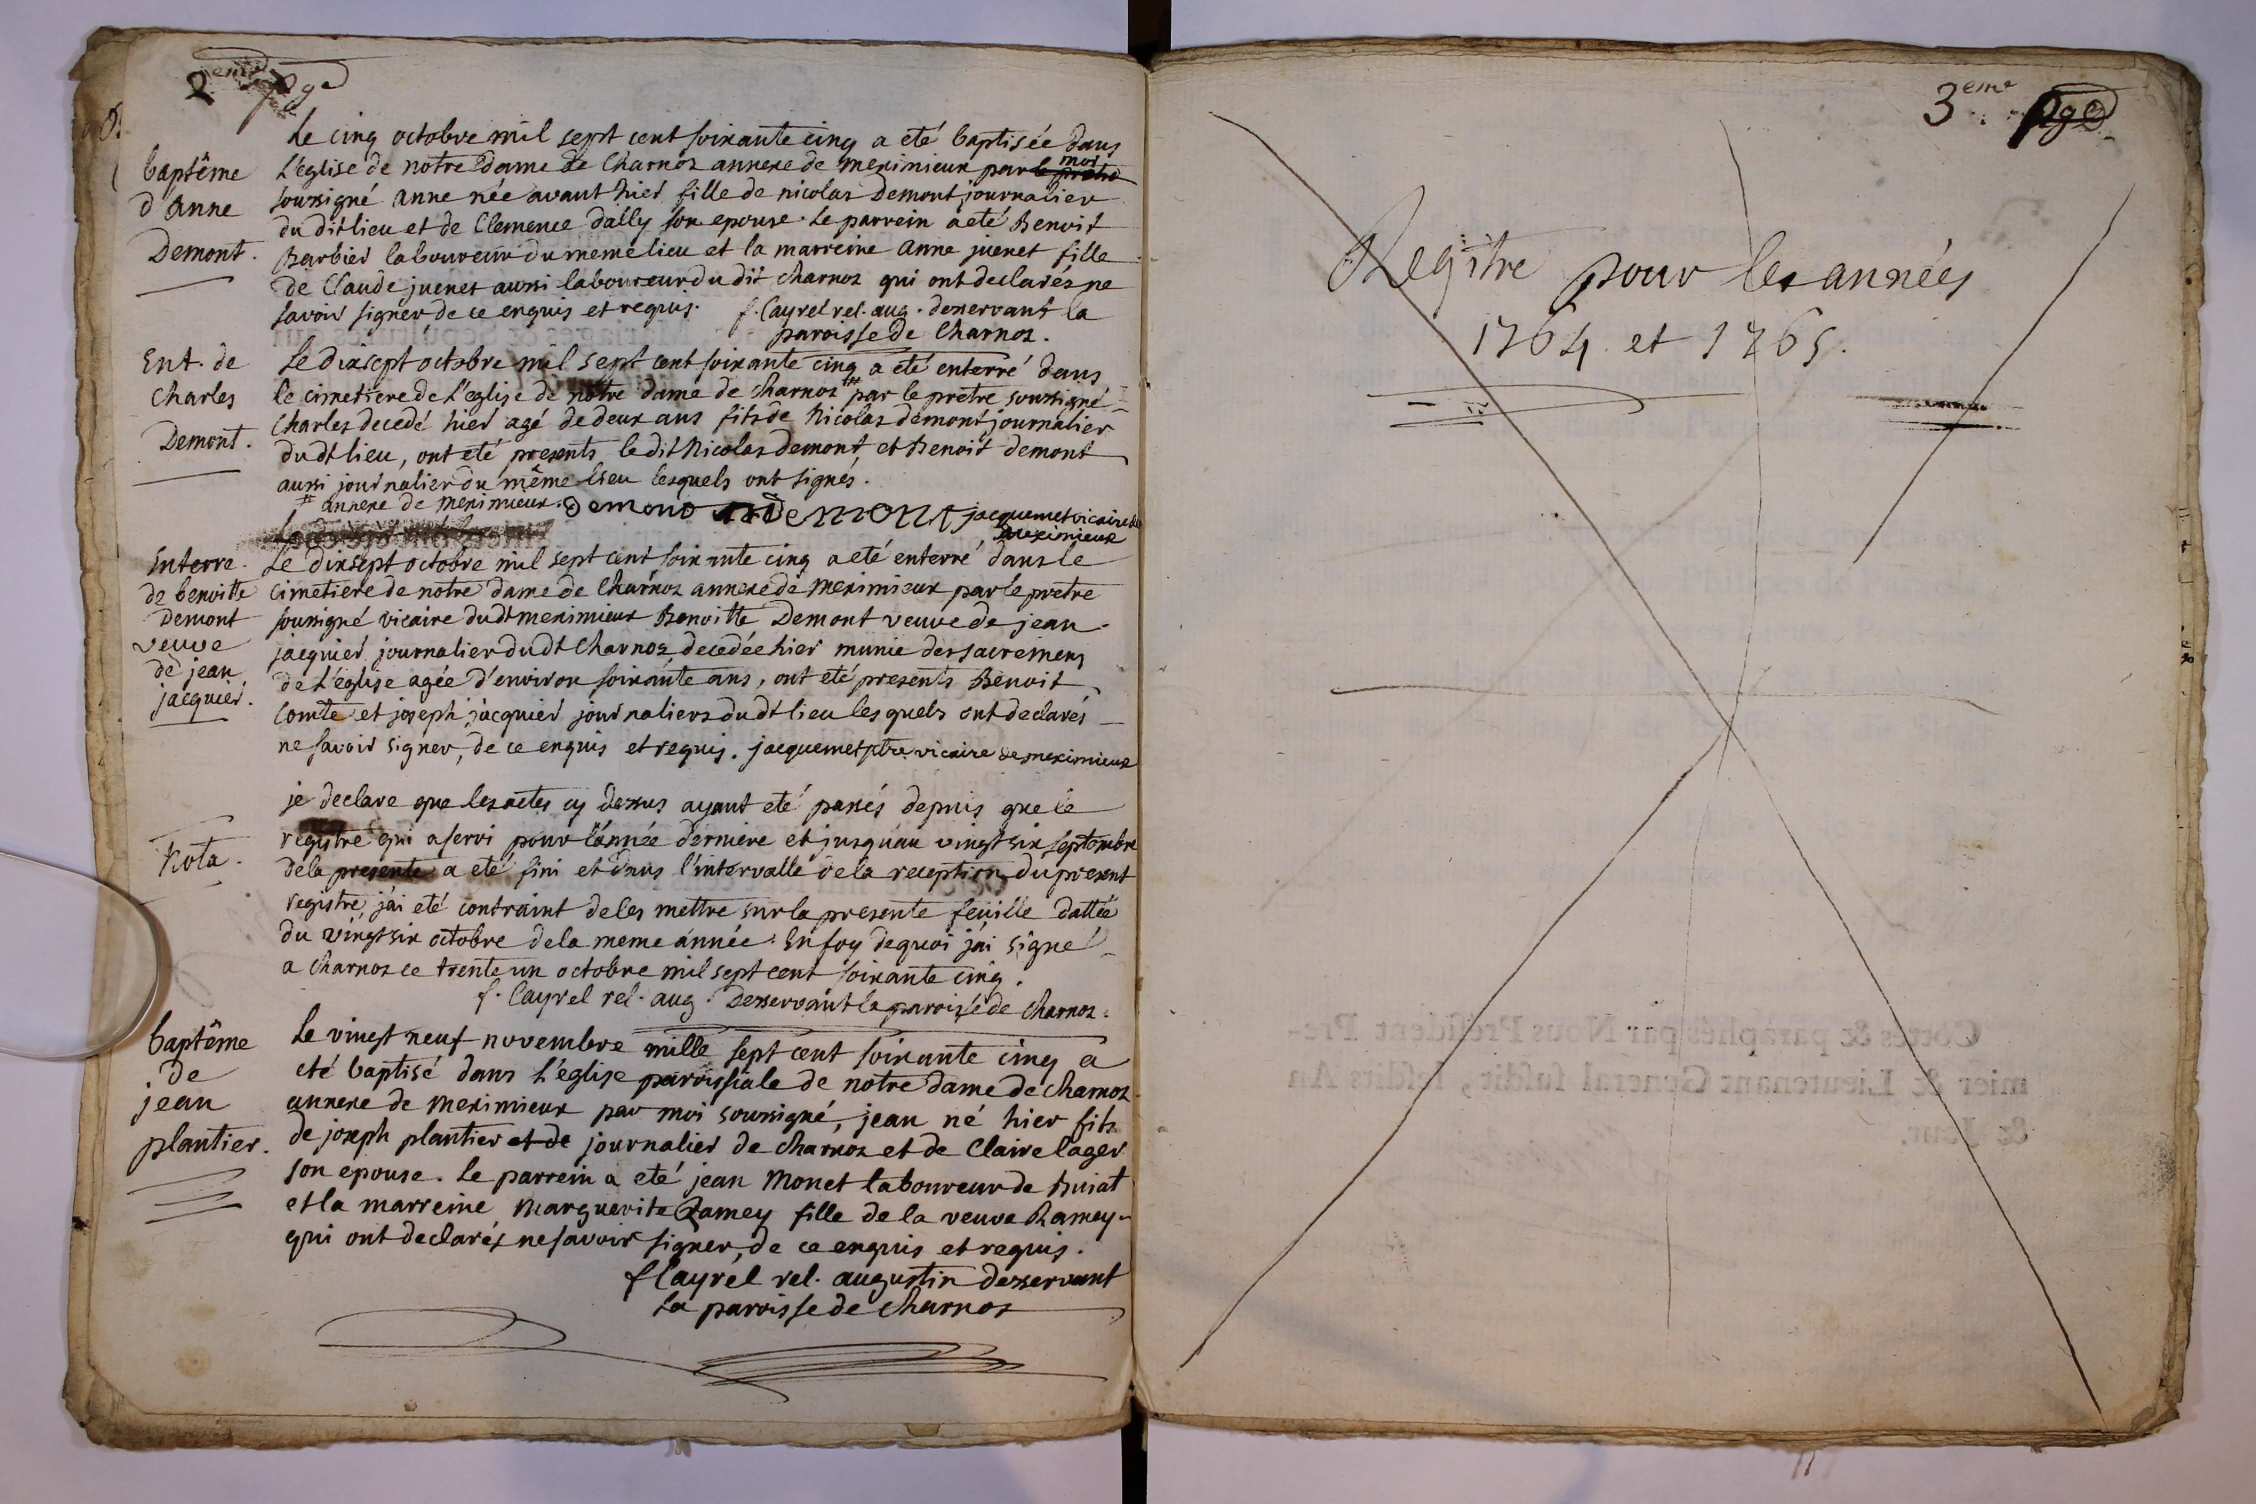 2eme page
Le cinq octobre mil sept cent soixante cinq a eté baptisée dans
baptême
d'Anne
Demont.
L'eglise de notre Dame de Charnoz annexe de meximieux par le prêtre moi
soussigné anne née avant hier fille de nicolas Demont journalier
du dit lieu et de Clemence dally son epouse. Le parrein a eté Benoit
Barbier laboureur du meme lieu et la marreine anne juenet fille
de Claude juenet aussi laboureur du dit charnoz qui ont declarés ne
savoir signer, de ce enquis et requis. f. Cayrel rel. aug. desservant la
paroisse de Charnoz.
Ent. de
Charles
Demont.
Le dixsept octobre mil sept cent soixante cinq a eté enterré dans
le cimetiere de L'eglise de notre dame de charnoz # par le prêtre soussigné
Charles decedé hier agé de deux ans fils de Nicolas demont journalier
dudt lieu, ont eté presents le dit Nicolas Demont, et Benoit demont
aussi journalier du même lieu lesquels ont signés.
# annexe de meximieux. Demont Demont jacquemet vicaire de
meximieux
Interre.
de benoitte
Demont
veuve
de jean
jacquier.
Le dixsept octobre mil sept cent soixante cinq a eté enterré dans le
cimetiere de notre dame de Charnoz annexe de meximieux par le prêtre
soussigné vicaire dudt meximieux Benoitte Demont veuve de jean
jacquier journalier dudt Charnoz decedée hier munie des sacremens
de L'église agée d'environ soixante ans, ont eté presents Benoit
Comte et joseph jacquier journaliers dudt lieu lesquels ont declarés
ne savoir signer, de ce enquis et requis. jacquemet ptre vicaire de meximieux
Nota.
je declare que les actes cy dessus ayant eté passés depuis que le
registre qui a servi pour l'année derniere et jusqu'au vingt six septembre
de la presente a eté fini et dans l'intervalle de la reception du present
registre, j'ai eté contraint de les mettre sur la presente feuille dattée
du vingt six octobre de la meme année. En foy de quoi j'ai signé
a Charnoz ce trente un octobre mil sept cent soixante cinq.
f. Cayrel rel. aug. Desservant la paroisse de Charnoz.
baptême
de
jean
plantier.
Le vingt neuf novembre mille sept cent soixante cinq a
eté baptisé dans L'église paroissiale de notre dame de charnoz
annexe de meximieux par moi soussigné, jean né hier fils
de joseph plantier et de journalier de charnoz et de Claire lager
son epouse. Le parrein a eté jean Monet laboureur de Buiat
et la marreine Marguerite Ramey fille de la veuve Ramey
qui ont declarés ne savoir signer, de ce enquis et requis.
f Cayrel rel. augustin desservant
La paroisse de Charnoz
3eme page
Registre pour les années
1764 et 1765.
Cottés & paraphés par Nous Président Pre-
mier & Lieutenant General susdit, lesdits An
& Jour.